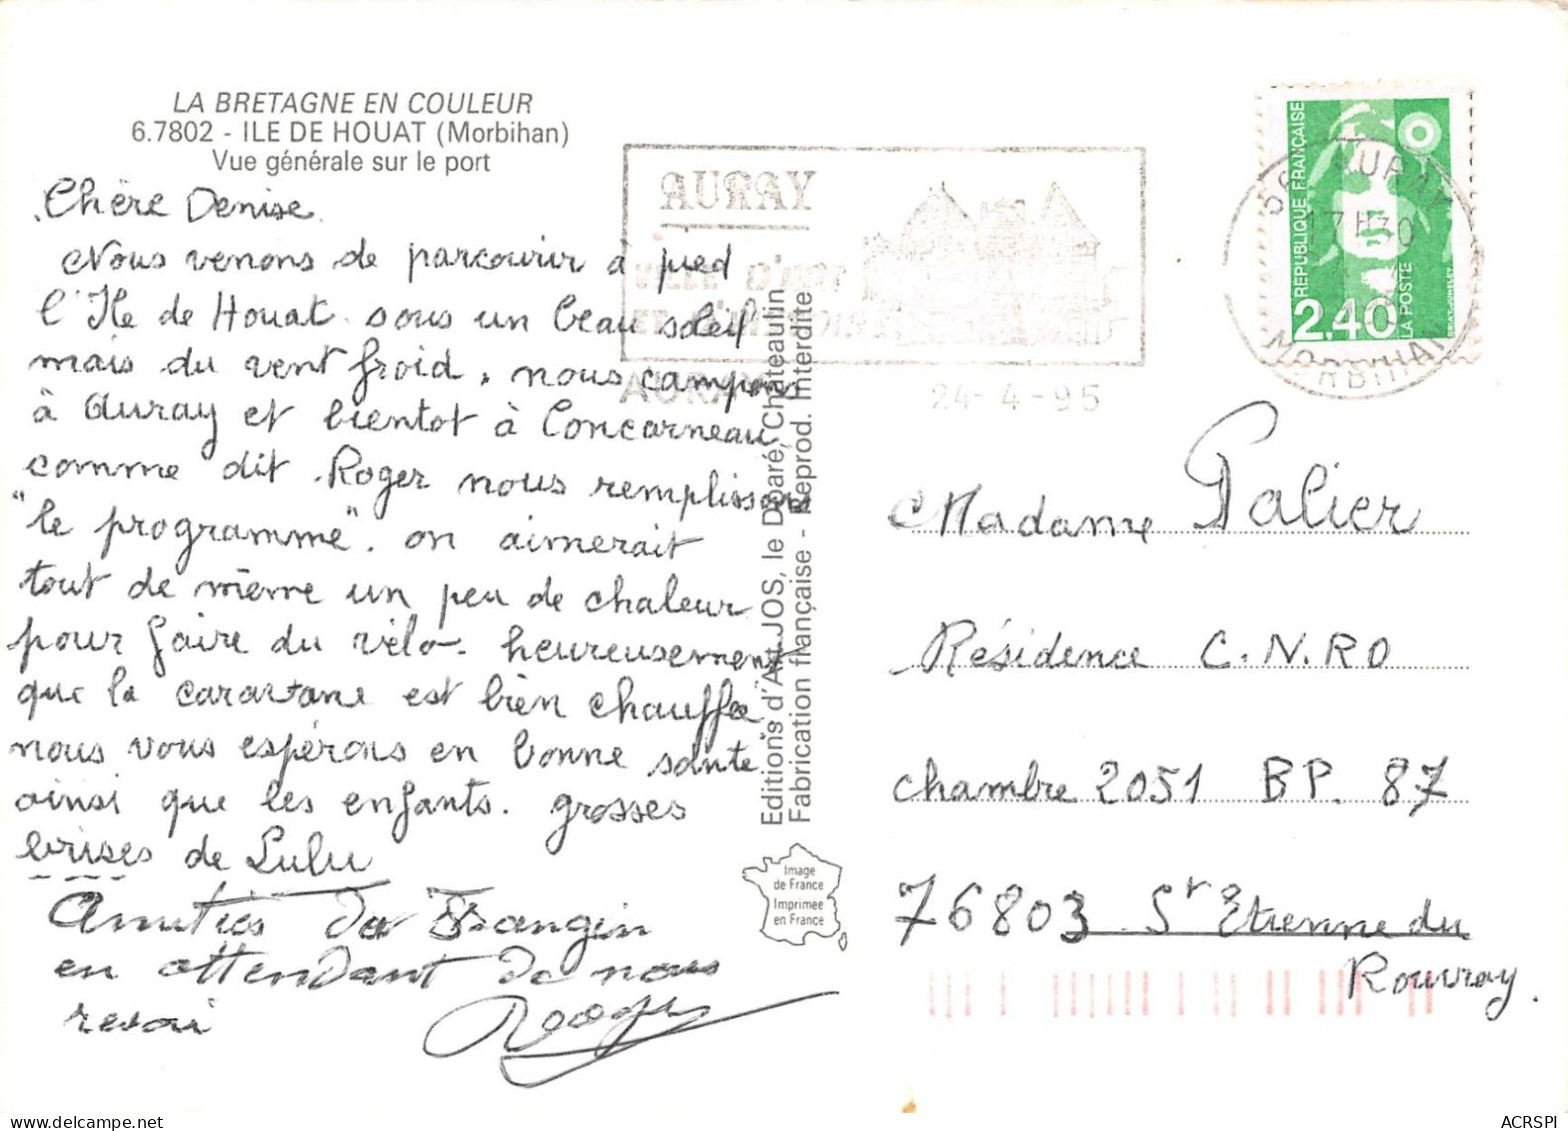 LA BRETAGNE EN COULEUR
6.7802 - ILE DE HOUAT (Morbihan)
Vue générale sur le port
Chère Denise
Nous venons de parcourir à pied
l'Ile de Houat sous un beau soleil
mais du vent froid, nous campons
à Auray et bientot à Concarneau
comme dit Roger nous remplissons
"le programme". on aimerait
tout de même un peu de chaleur
pour faire du vélo. heureusement
que la caravane est bien chauffée
nous vous espérons en bonne santé
ainsi que les enfants. grosses
brises de Lulu
Amitiés de Frangin
en attendant de nous
revoir
Roger
Editions d'Art JOS, le Doaré, Châteaulin
Fabrication française - Reprod. Interdite
Image
de France
Imprimée
en France
AURAY
VILLE D'ART
ET D'HISTOIRE
AURAY
24-4-95
56 AURAY
17H30
MORBIHAN
REPUBLIQUE FRANÇAISE
2,40
LA POSTE
BRIAT-JUMELET
Madame Palier
Résidence C.N.RO
chambre 2051 BP. 87
76803 St Etienne du
Rouvray.
ACRSPI